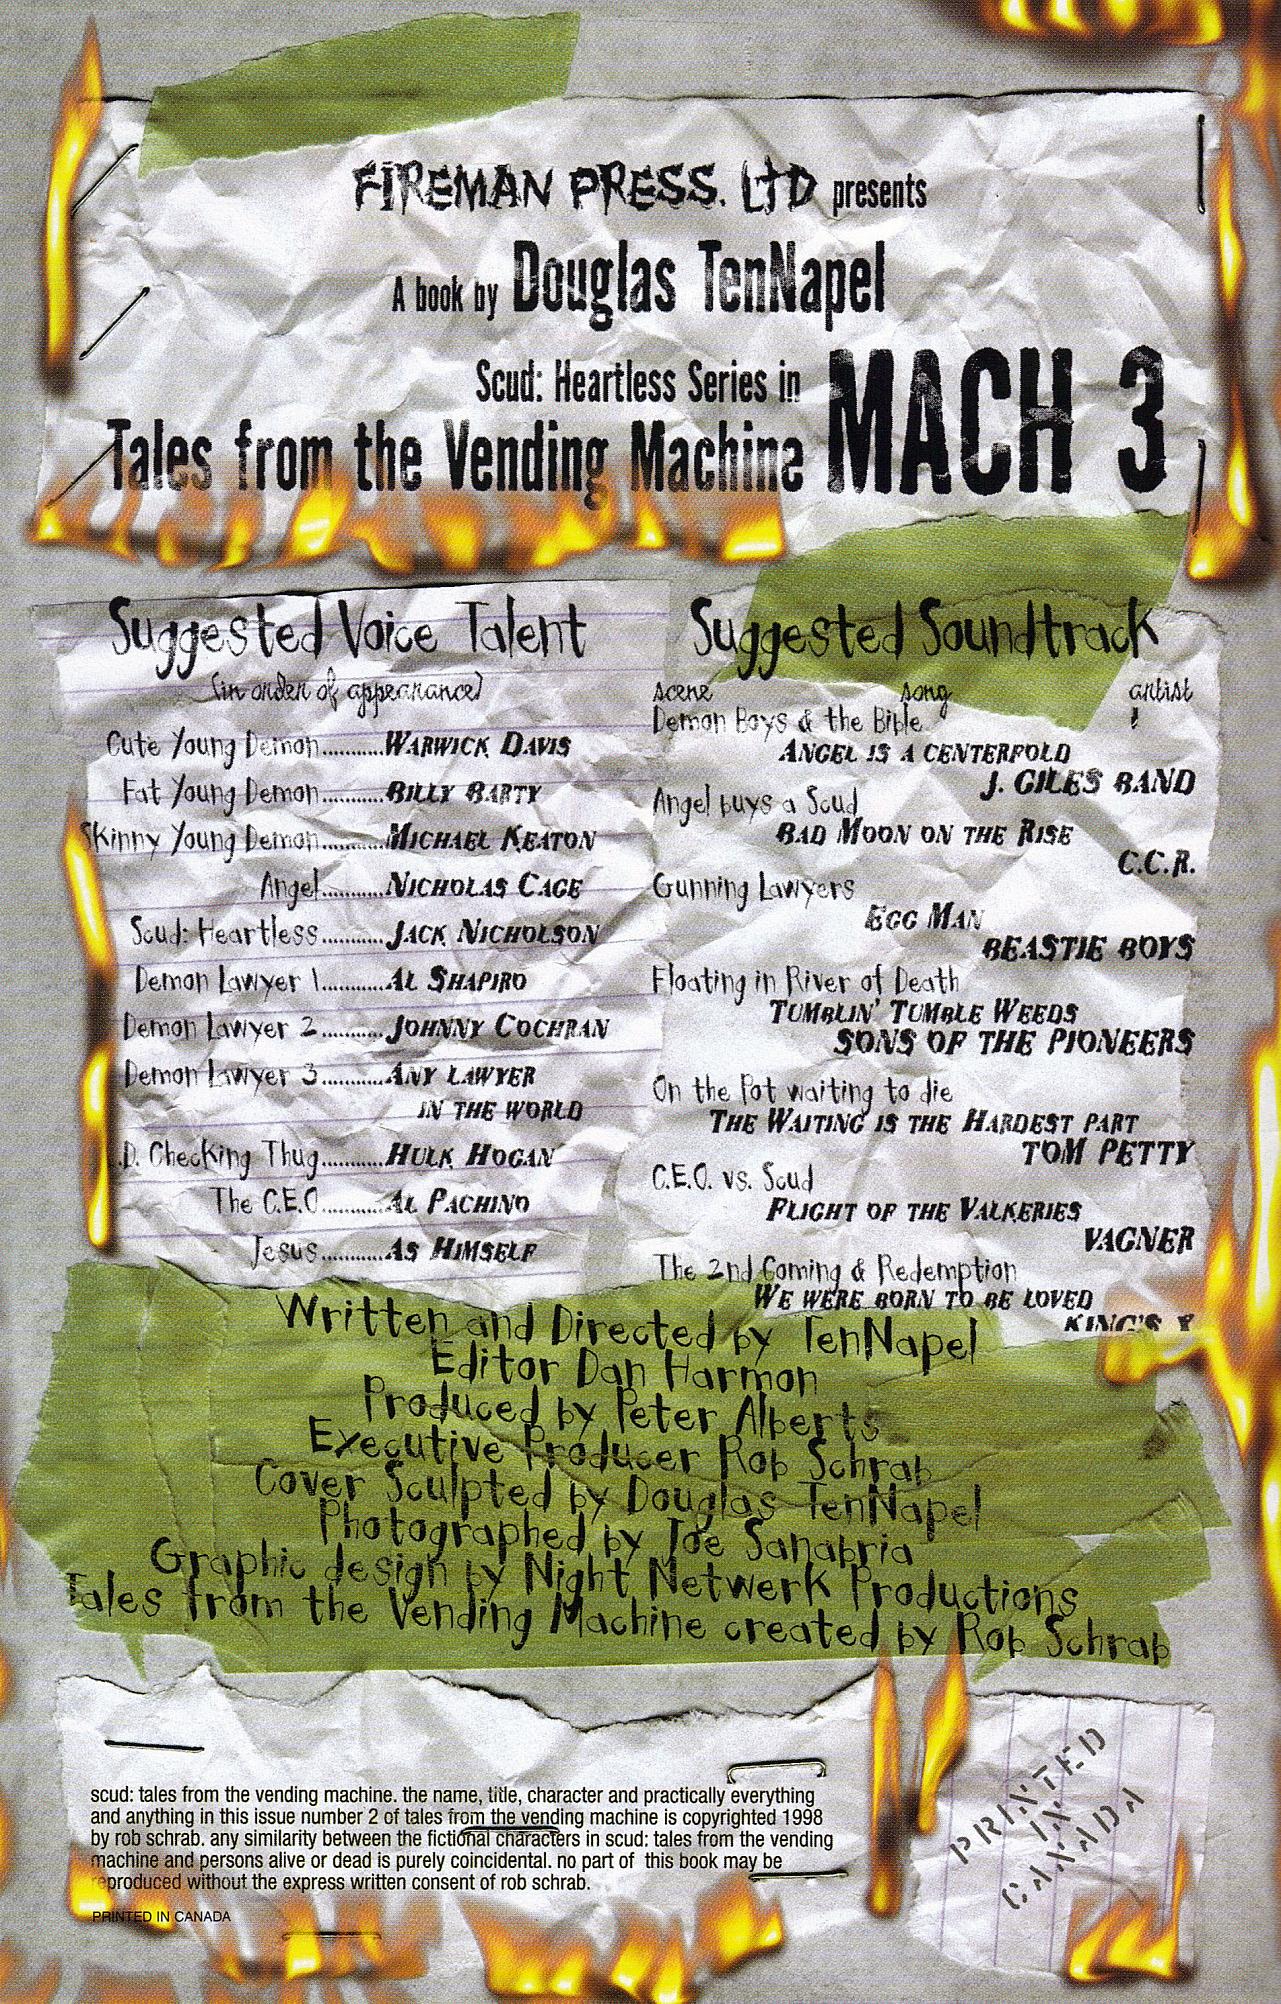 FIREMAN PRESS. LTD presents
A book by Douglas TenNapel
Scud: Heartless Series in MACH 3
Tales from the Vending Machine
Suggested Voice Talent
(in order of appearance)
Cute Young Demon...........WARWICK DAVIS
Fat Young Demon...........BILLY BARTY
Skinny Young Demon...........MICHAEL KEATON
Angel...........NICHOLAS CAGE
Scud: Heartless...........JACK NICHOLSON
Demon Lawyer 1...........AL SHAPIRO
Demon Lawyer 2...........JOHNNY COCHRAN
Demon Lawyer 3...........ANY LAWYER
IN THE WORLD
.D. Checking Thug...........HULK HOGAN
The C.E.O...........AL PACHINO
Jesus...........AS HIMSELF
Suggested Soundtrack
scene song artist
Demon Boys & the Bible
ANGEL IS A CENTERFOLD
J. GILES BAND
Angel buys a Scud
BAD MOON ON THE RISE
C.C.R.
Gunning Lawyers
EGG MAN
BEASTIE BOYS
Floating in River of Death
TUMBLIN' TUMBLE WEEDS
SONS OF THE PIONEERS
On the Pot waiting to die
THE WAITING IS THE HARDEST PART
TOM PETTY
C.E.O. vs. Scud
FLIGHT OF THE VALKERIES
VAGNER
The 2nd Coming & Redemption
WE WERE BORN TO BE LOVED
KING'S X
Written and Directed by TenNapel
Editor Dan Harmon
Produced by Peter Alberts
Executive Producer Rob Schrab
Cover Sculpted by Douglas TenNapel
Photographed by Joe Sanabria
Graphic design by Night Netwerk Productions
Tales from the Vending Machine created by Rob Schrab
scud: tales from the vending machine. the name, title, character and practically everything
and anything in this issue number 2 of tales from the vending machine is copyrighted 1998
by rob schrab. any similarity between the fictional characters in scud: tales from the vending
machine and persons alive or dead is purely coincidental. no part of this book may be
reproduced without the express written consent of rob schrab.
PRINTED IN CANADA
PRINTED
IN
CANADA